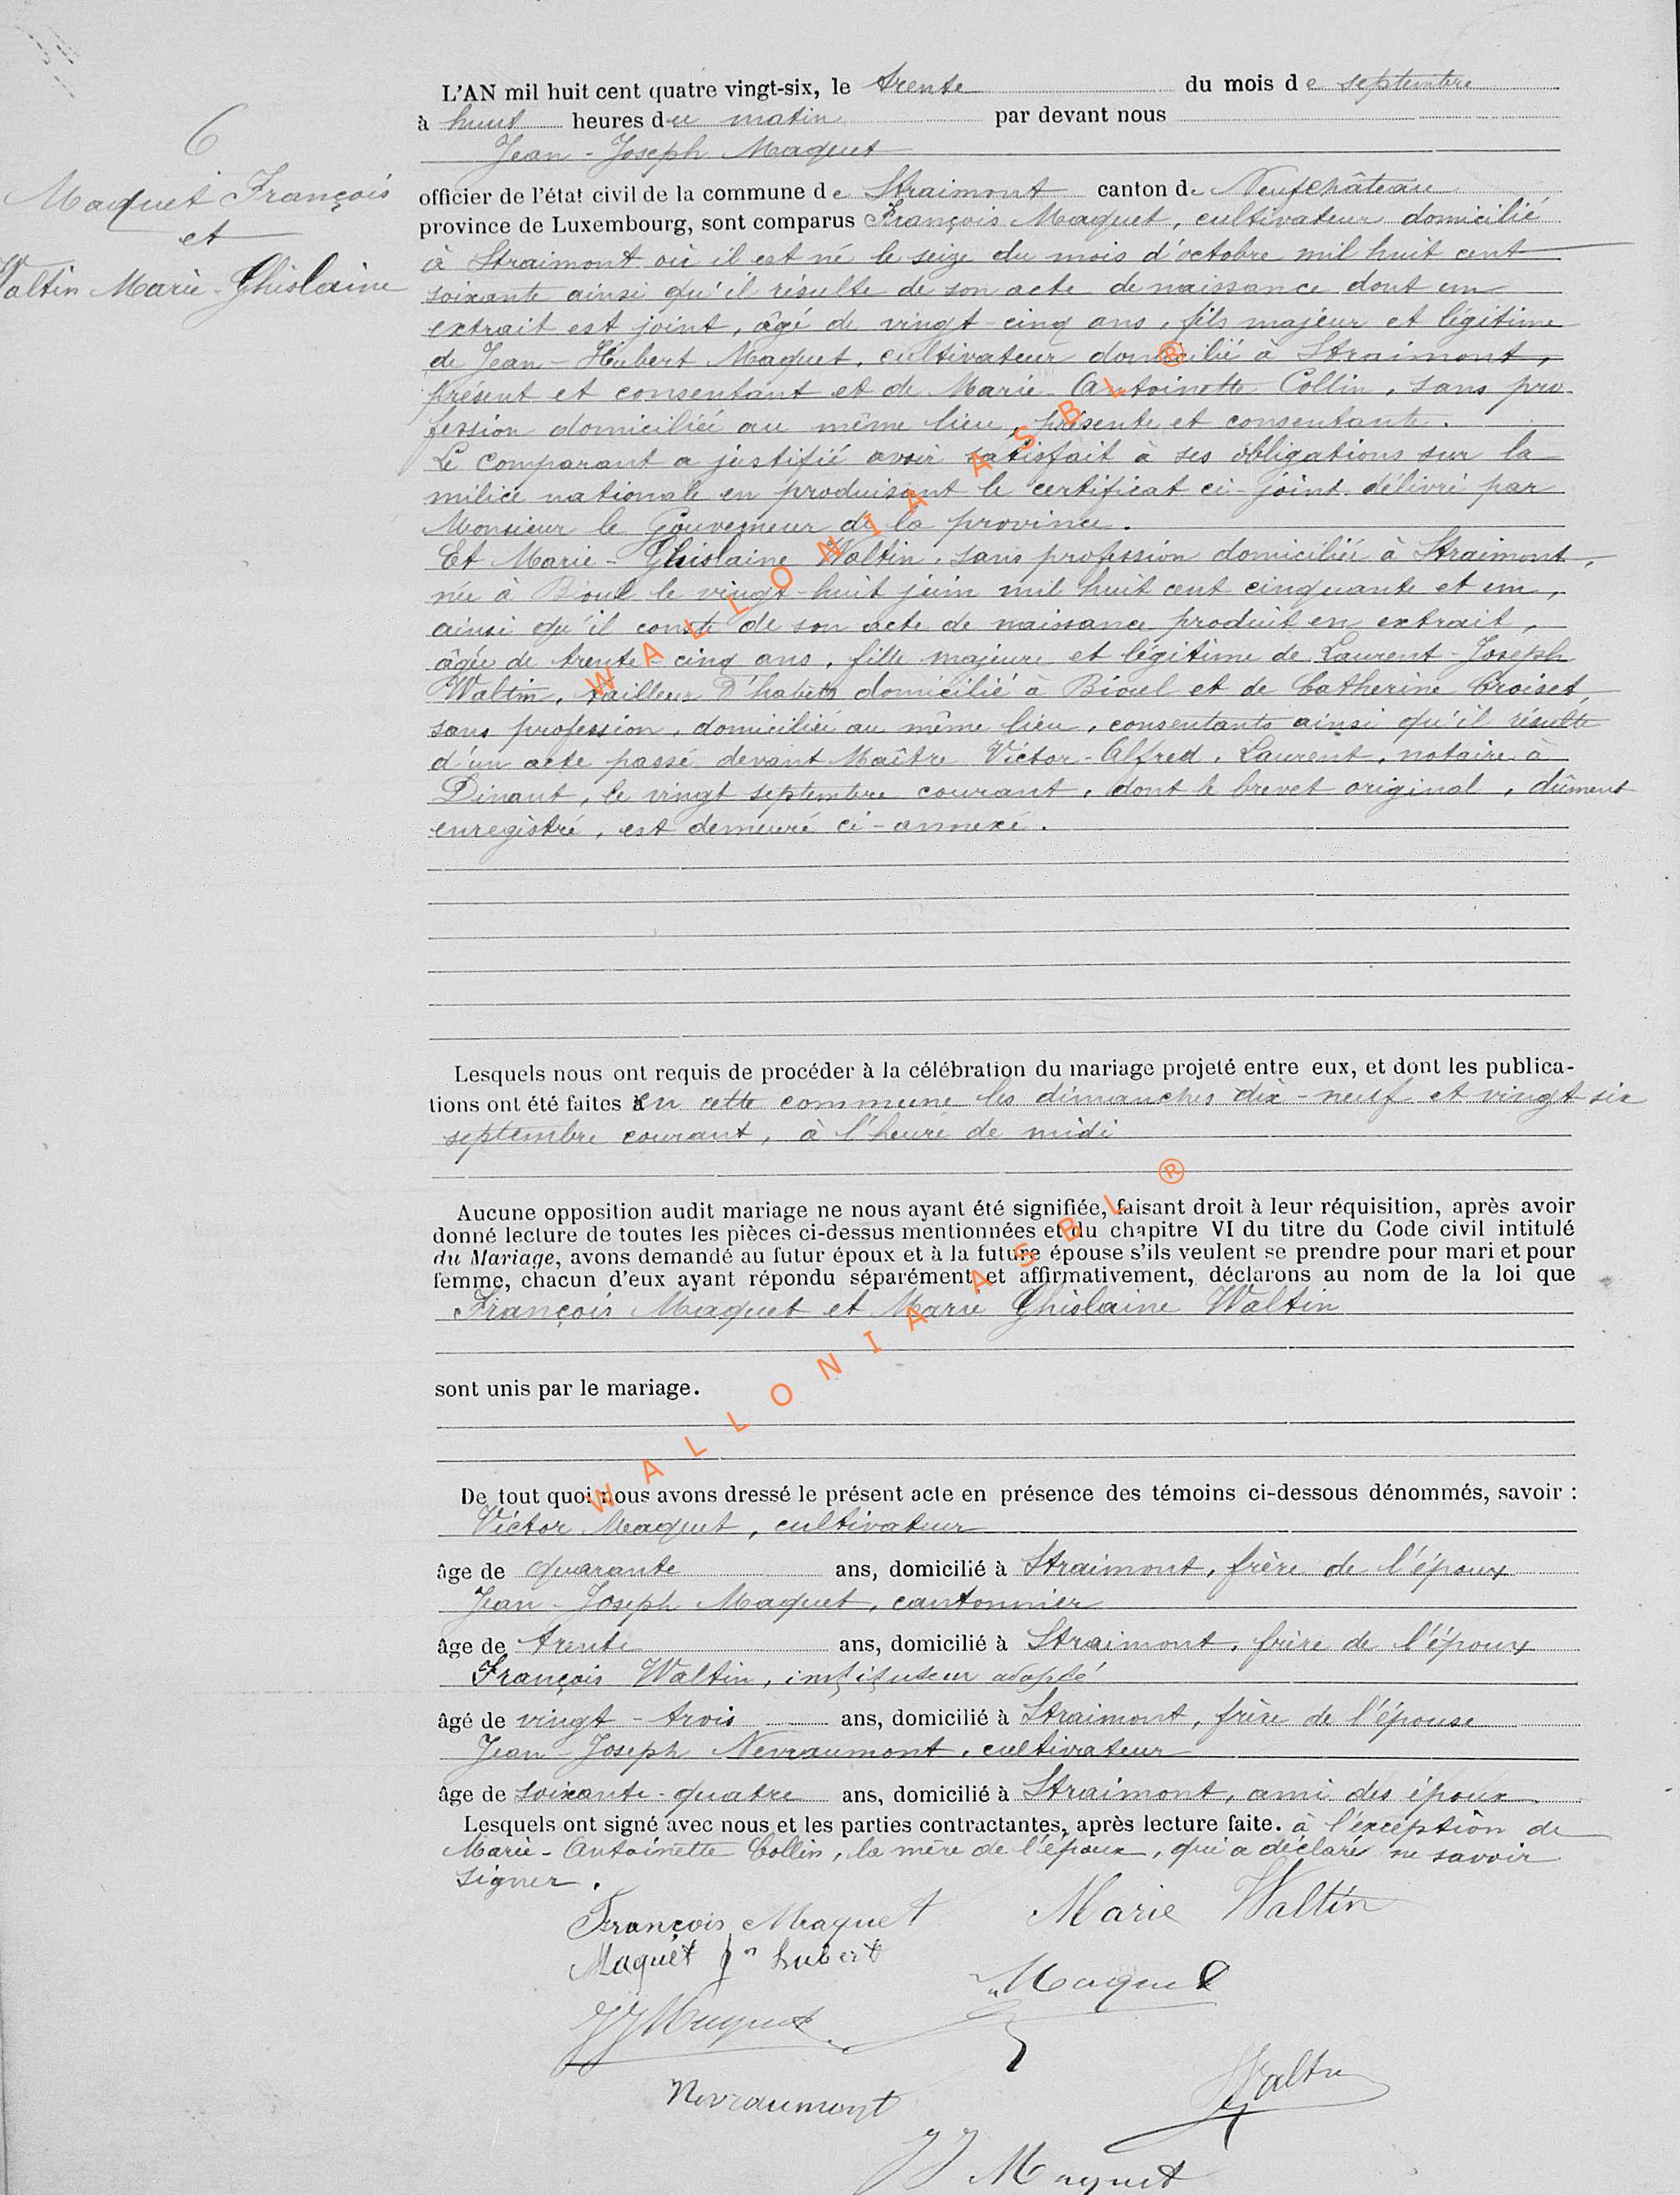 L'AN mil huit cent quatre vingt-six, le trente du mois de septembre
à huit heures du matin par devant nous
Jean-Joseph Maquet
6
Maquet François
et
Waltin Marie-Ghislaine
officier de l'état civil de la commune de Straimont canton de Neufchâteau
province de Luxembourg, sont comparus François Maquet, cultivateur domicilié
à Straimont où il est né le seize du mois d'octobre mil huit cent
soixante ainsi qu'il résulte de son acte de naissance dont un
extrait est joint, âgé de vingt-cinq ans, fils majeur et légitime
de Jean-Hubert Maquet, cultivateur domicilié à Straimont,
présent et consentant et de Marie-Antoinette Collin, sans pro-
fession domiciliée au même lieu, présente et consentante.
Le comparant a justifié avoir satisfait à ses obligations sur la
milice nationale en produisant le certificat ci-joint délivré par
Monsieur le Gouverneur de la province.
Et Marie-Ghislaine Waltin, sans profession domiciliée à Straimont,
née à Bioul le vingt-huit juin mil huit cent cinquante et un,
ainsi qu'il conste de son acte de naissance produit en extrait,
âgée de trente-cinq ans, fille majeure et légitime de Laurent-Joseph
Waltin, tailleur d'habits domicilié à Bioul et de Catherine Croiset
sans profession, domiciliée au même lieu, consentants ainsi qu'il résulte
d'un acte passé devant Maître Victor-Alfred, Laurent, notaire à
Dinant, le vingt septembre courant, dont le brevet original, dûment
enregistré, est demeuré ci-annexé.
WALLONIA ASBL ®
Lesquels nous ont requis de procéder à la célébration du mariage projeté entre eux, et dont les publica-
tions ont été faites en cette commune les dimanches dix-neuf et vingt six
septembre courant, à l'heure de midi
Aucune opposition audit mariage ne nous ayant été signifiée, faisant droit à leur réquisition, après avoir
donné lecture de toutes les pièces ci-dessus mentionnées et du chapitre VI du titre du Code civil intitulé
du Mariage, avons demandé au futur époux et à la future épouse s'ils veulent se prendre pour mari et pour
femme, chacun d'eux ayant répondu séparément et affirmativement, déclarons au nom de la loi que
François Maquet et Marie Ghislaine Waltin
sont unis par le mariage.
WALLONIA ASBL ®
De tout quoi nous avons dressé le présent acte en présence des témoins ci-dessous dénommés, savoir :
Victor Maquet, cultivateur
âge de quarante ans, domicilié à Straimont, frère de l'époux
Jean-Joseph Maquet, cantonnier
âge de trente ans, domicilié à Straimont, frère de l'époux
François Waltin, instituteur adopté
âgé de vingt-trois ans, domicilié à Straimont, frère de l'épouse
Jean-Joseph Nevraumont, cultivateur
âge de soixante-quatre ans, domicilié à Straimont, ami des époux
Lesquels ont signé avec nous et les parties contractantes, après lecture faite. à l'exception de
Marie-Antoinette Collin, la mère de l'époux, qui a déclaré ne savoir
signer.
François Maquet Marie Waltin
Maquet Jn hubert
Maquet
JJ Maquet
Waltin
Nevraumont
JJ Maquet